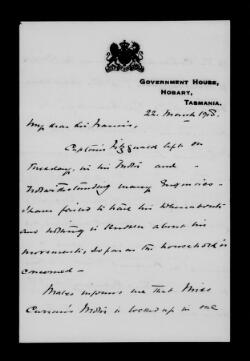 GOVERNMENT HOUSE,
HOBART,
TASMANIA.
22. March 1908.
My dear Sir Francis,
Captain Fitzgerald left on
Tuesday, in his Motor and -
Notwithstanding many Inquiries -
I have failed to trace his whereabouts
and nothing is known about his
movements, so far as the household is
concerned -
informs me that Miss
Motor is locked up in one